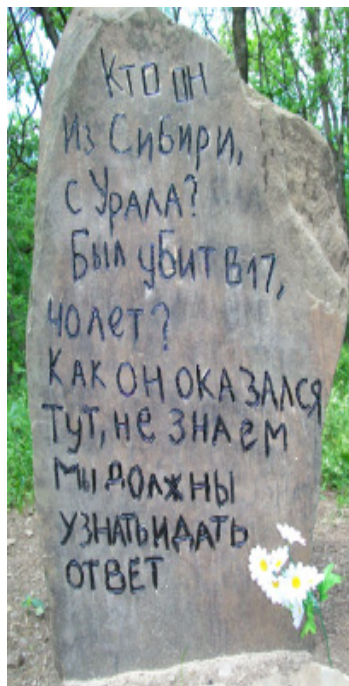 Кто он
Из Сибири,
с Урала?
Был убит в 17,
40 лет?
Как он оказался
тут, не знаем
мы должны
узнать и дать
ответ